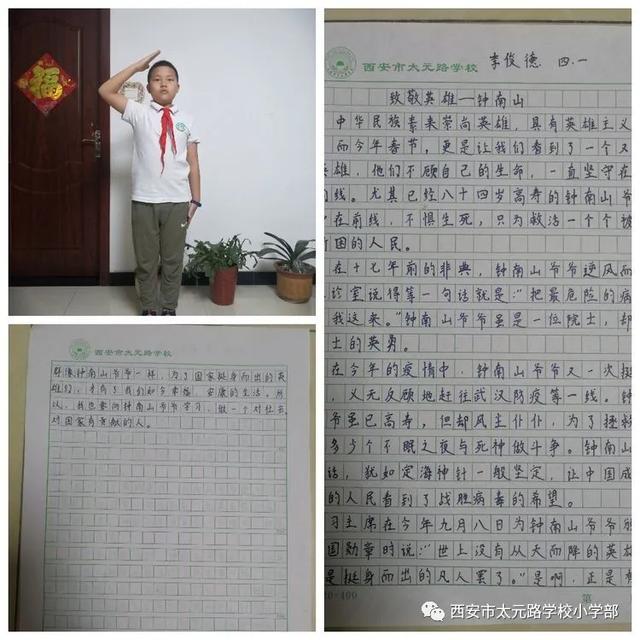 福
西安市太元路学校 李俊德 四.一
致敬英雄—钟南山
中华民族素来崇尚英雄，具有英雄主义
而今年春节，更是让我们看到了一个又
雄，他们不顾自己的生命，一直坚守在
线。尤其已经八十四岁高寿的钟南山爷
在前线，不惧生死，只为救活一个个被
困的人民。
在十七年前的非典，钟南山爷爷逆风而
诊室说得等一句话就是：“把最危险的病
我这来。”钟南山爷爷虽是一位院士，却
士的英勇。
在今年的疫情中，钟南山爷爷又一次挺
，义无反顾地赶往武汉防疫等一线。钟
爷虽已高寿，但却风主仆仆，为了拯救
多少个不眠之夜与死神做斗争。钟南山
话，犹如定海神针一般坚定，让中国成
的人民看到了战胜病毒的希望。
习主席在今年九月八日为钟南山爷爷
国勋章时说：“世上没有从天而降的英雄
是挺身而出的凡人罢了。”是啊，正是
第
西安市太元路学校
群像钟南山爷爷一样，为了国家挺身而出的英
雄们，才有了我们如今幸福、安康的生活。所
以，我也要向钟南山爷爷学习，做一个对社会
对国家有贡献的人。
西安市太元路学校小学部